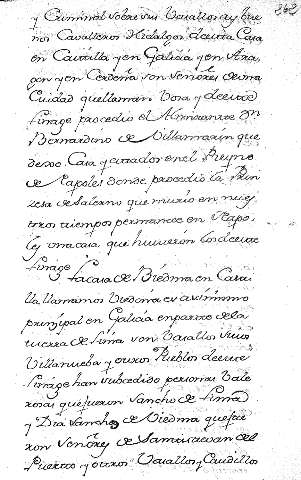 262
y Criminal sobre sus Vasallos ay bue
nos Cavalleros Hidalgos de esta Casa
en Castilla y en Galicia y en Ara
gon y en Cerdeña son señores de una
Ciudad que llaman Bosa y de este
linage procedio el Almirante Dn
Bernardino de Villamarin que
dexo Casa y estado en el Reyno
de Napoles donde procedio la Prin
cesa de Salerno que murio en nues
tros tiempos permanece en Napo
les una casa que huvieron los de este
linage
La casa de Biedma en Casti
lla llamamos Viedma es assimismo
principal en Galicia en parte de la
tierra de Limia son Vasallos suios
Villanueba y otros Pueblos de este
Linage han subcedido personas Vale
rosas que fueron Sancho de Limia
y Dia Sanchez de Viedma que fue
ron Señores de Santistevan del
Puerto y otros Vasallos y Caudillos